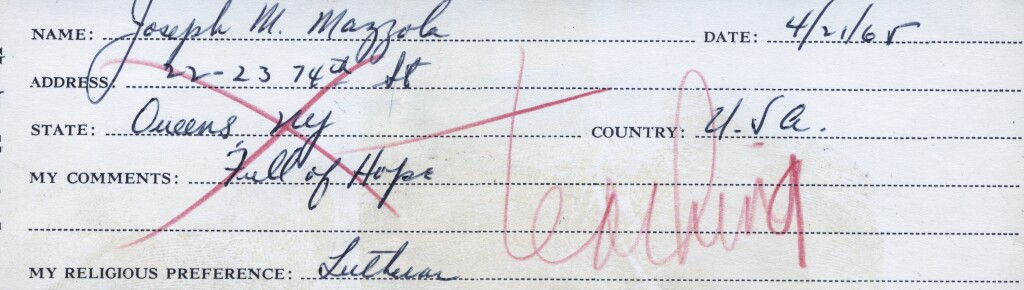 NAME: Joseph M. Mazzola DATE: 4/21/65
ADDRESS: 22-23 74th St
STATE: Queens, NY COUNTRY: U.S.A.
MY COMMENTS: Full of Hope
teaching
MY RELIGIOUS PREFERENCE: Lutheran